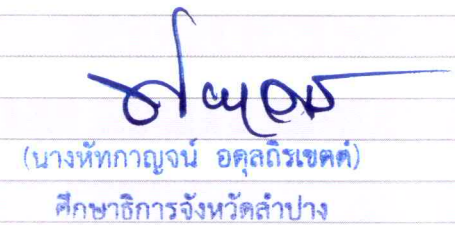 (นางหัทกาญจน์ อดุลถิรเขตต์)
ศึกษาธิการจังหวัดลำปาง